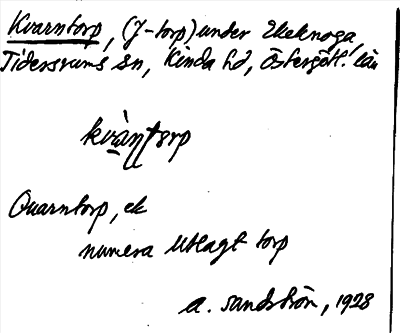 Kvarntorp, (J-torp) under Ekeknoga,
Tidersrums sn, Kinda hd, Östergötl. län
kvὰ̄n̠torp
Quarntorp, ek
numera utlagt torp
A. Sandström, 1928